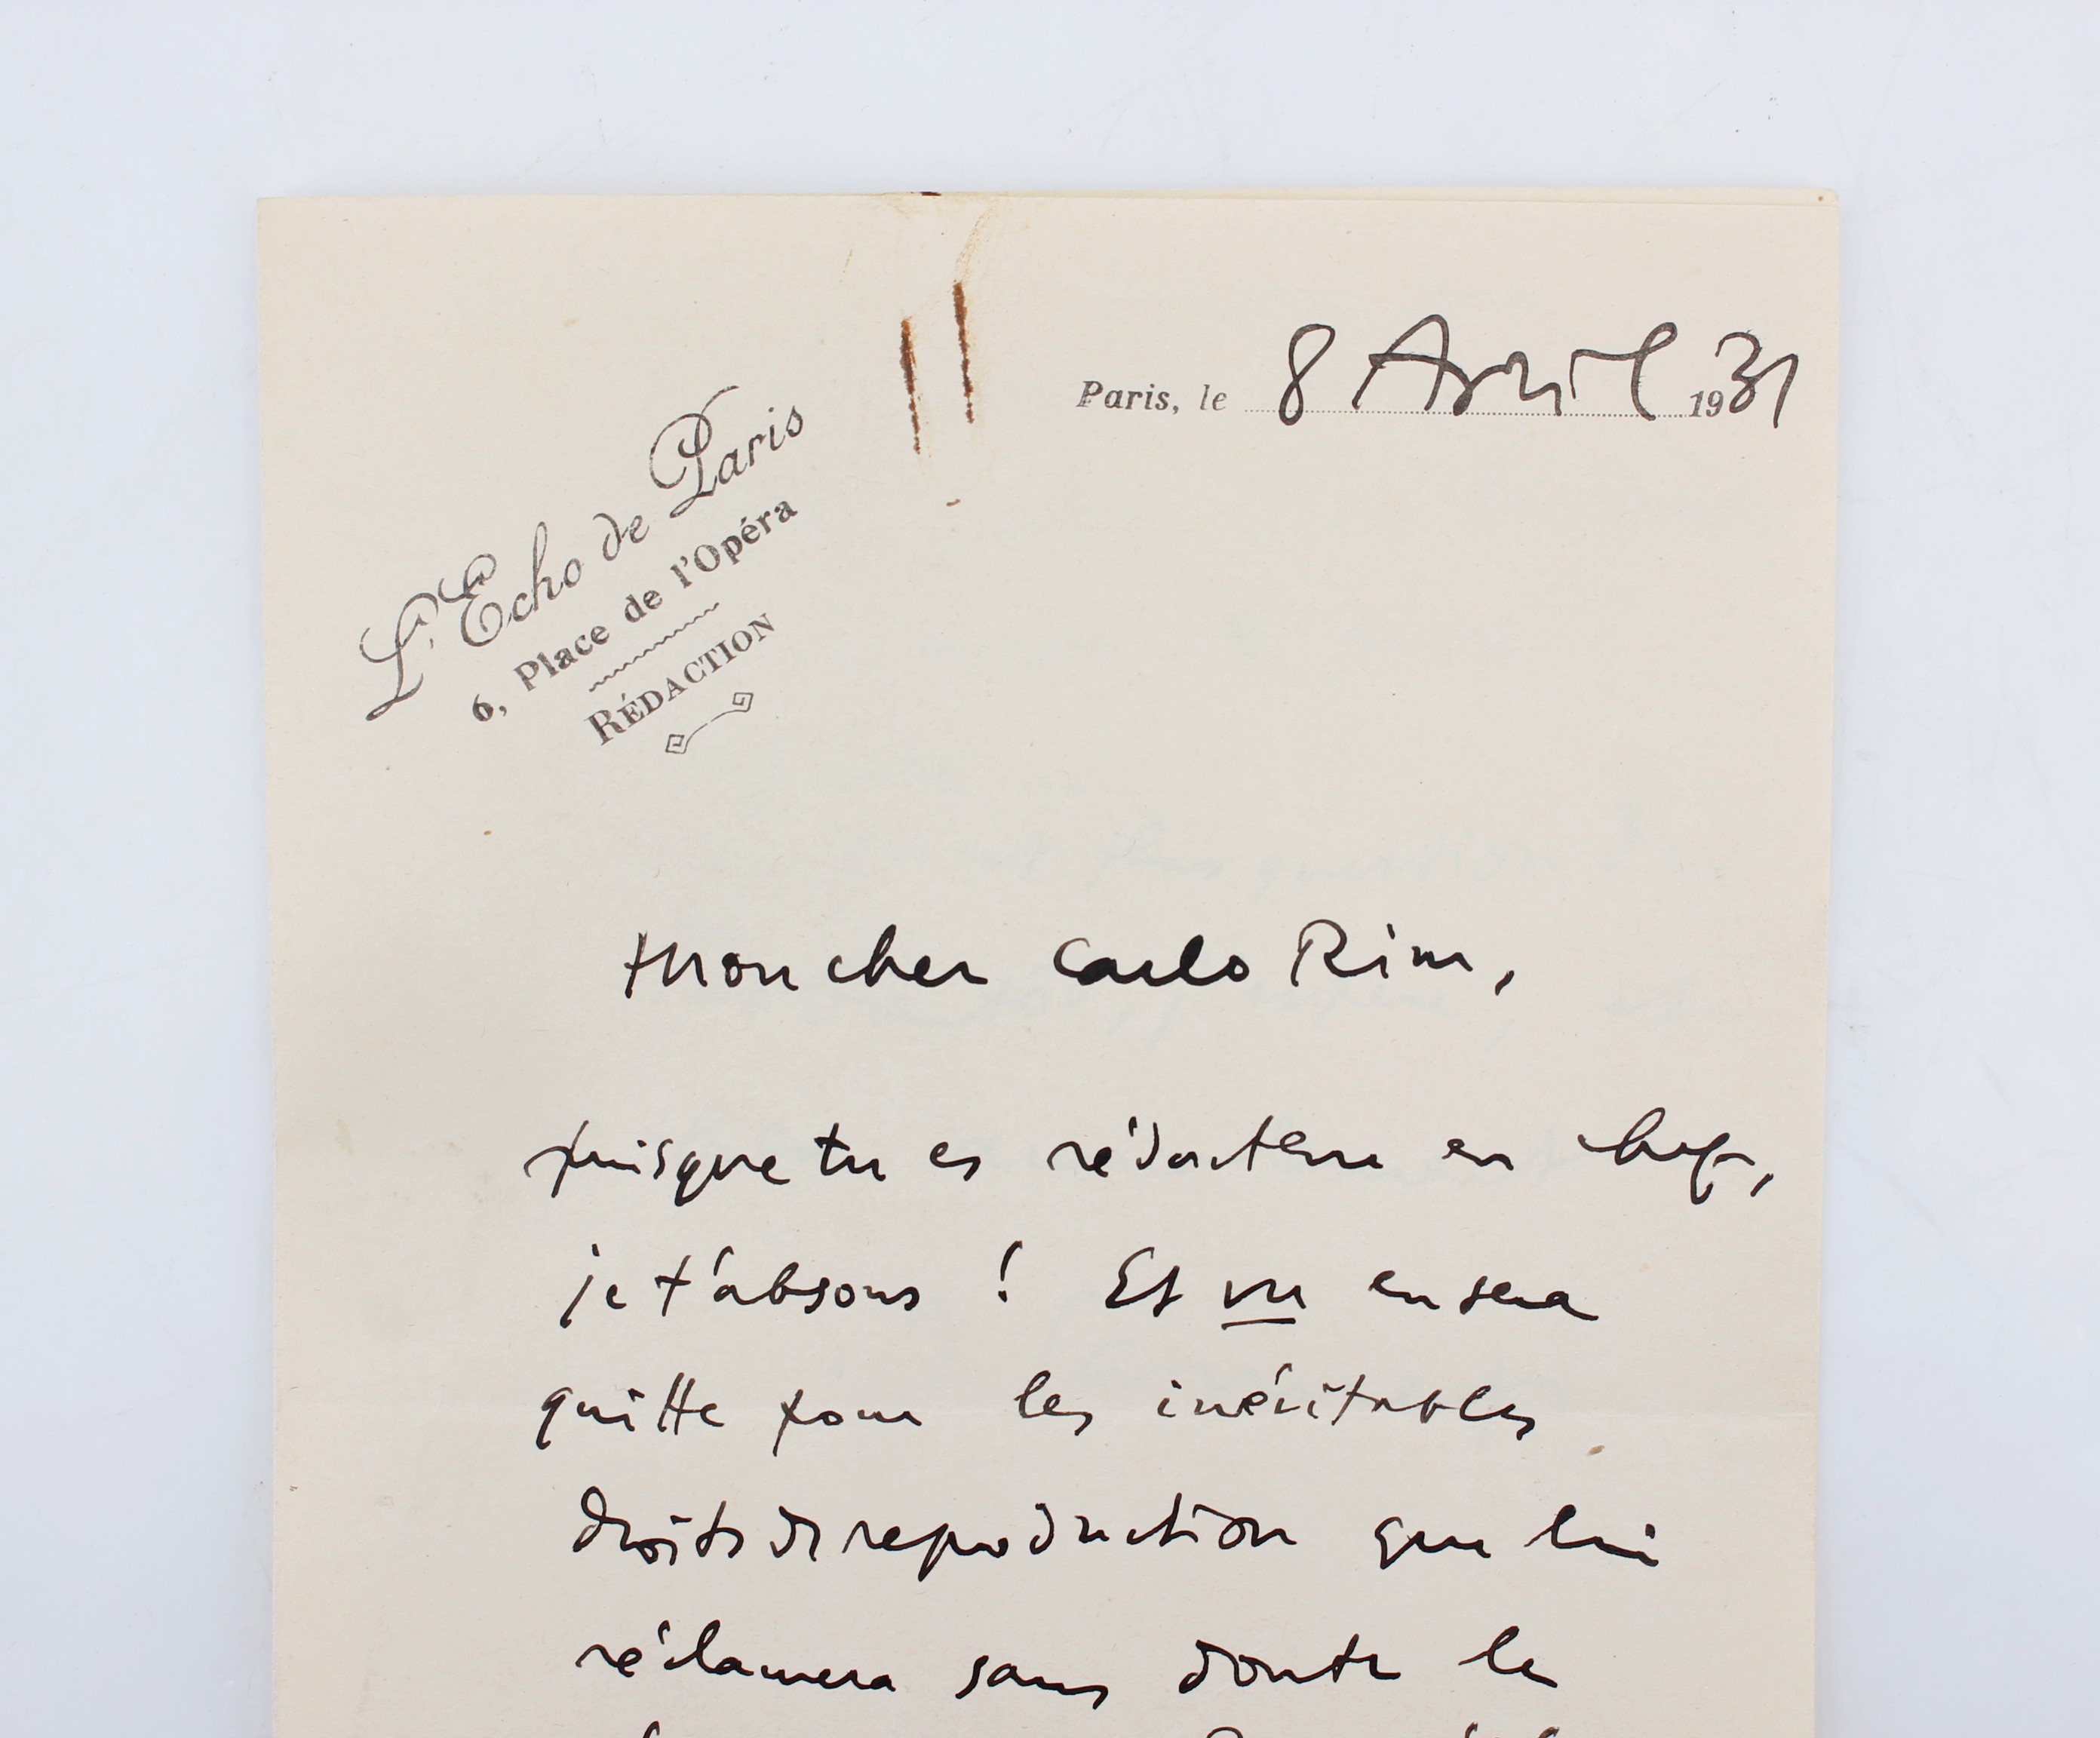 L'Echo de Paris
6, Place de l'Opéra
RÉDACTION
Paris, le 8 Avril 1931
Mon cher Carlo Rim,
puisque tu es rédacteur en chef,
je t'absous ! Et vu en sera
quitte pour les inévitables
droits de reproduction que lui
réclamera sans doute le